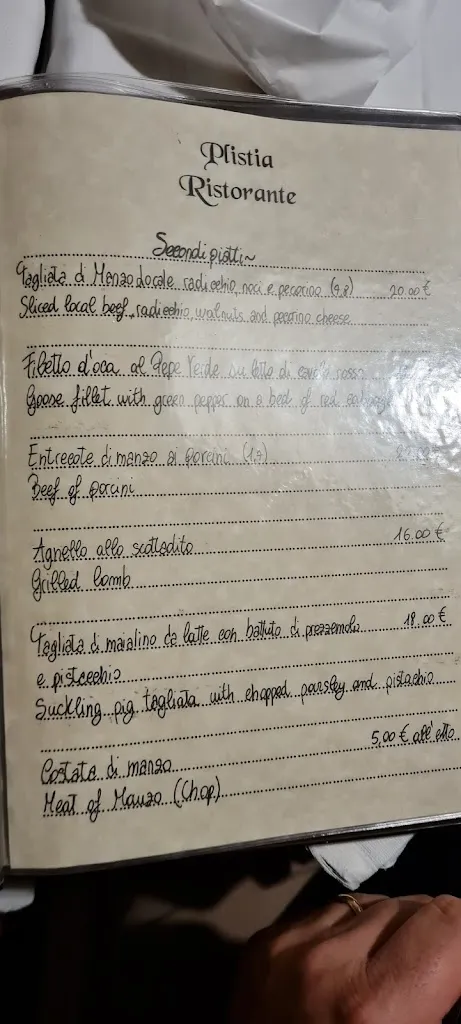 Plistia
Ristorante
Secondi piatti
Tagliata di Manzo locale radicchio noci e pecorino (7,8) 20.00 €
Sliced local beef, radicchio, walnuts and pecorino cheese
Filetto d'oca al Pepe Verde su letto di cavolo rosso
Goose fillet with green pepper on a bed of red cabbage
Entrecote di manzo ai porcini (1,7)
Beef of porcini
Agnello allo scottadito 16.00 €
Grilled lamb
Tagliata di maialino da latte con battuto di prezzemolo 18.00 €
e pistcechio
Suckling pig tagliata with chopped parsley and pistachio
5,00 € all'etto
Costata di manzo
Meat of Manzo (Chop)